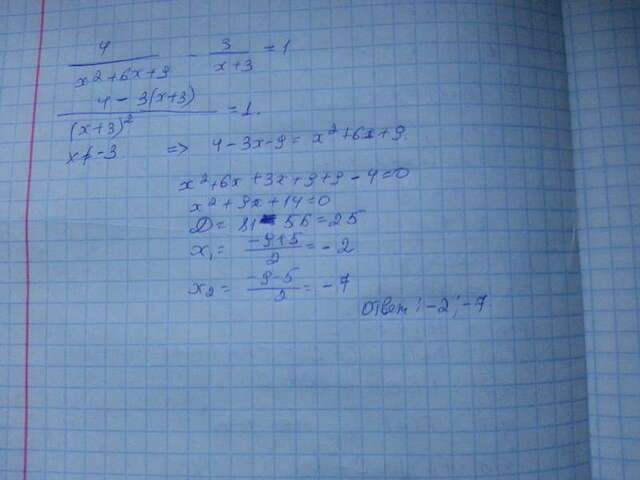 4/(x²+6x+9) - 3/(x+3) = 1
(4-3(x+3))/(x+3)² = 1.
x≠-3 => 4-3x-9 = x²+6x+9.
x²+6x+3x+9+9-4=0
x²+9x+14=0
D = 81-56 = 25
x₁ = (-9+5)/2 = -2
x₂ = (-9-5)/2 = -7
Ответ: -2; -7